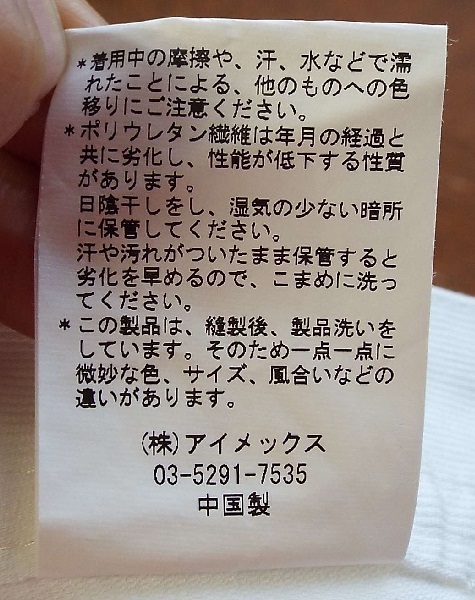 *着用中の摩擦や、汗、水などで濡
れたことによる、他のものへの色
移りにご注意ください。
*ポリウレタン繊維は年月の経過と
共に劣化し、性能が低下する性質
があります。
日陰干しをし、湿気の少ない暗所
に保管してください。
汗や汚れがついたまま保管すると
劣化を早めるので、こまめに洗っ
てください。
*この製品は、縫製後、製品洗いを
しています。そのため一点一点に
微妙な色、サイズ、風合いなどの
違いがあります。
(株)アイメックス
03-5291-7535
中国製